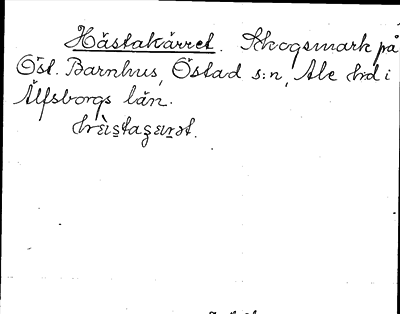 Hästakärret. Skogsmark på
Öst. Barnhus, Östad s:n, Ale hrd i
Älfsborgs län.